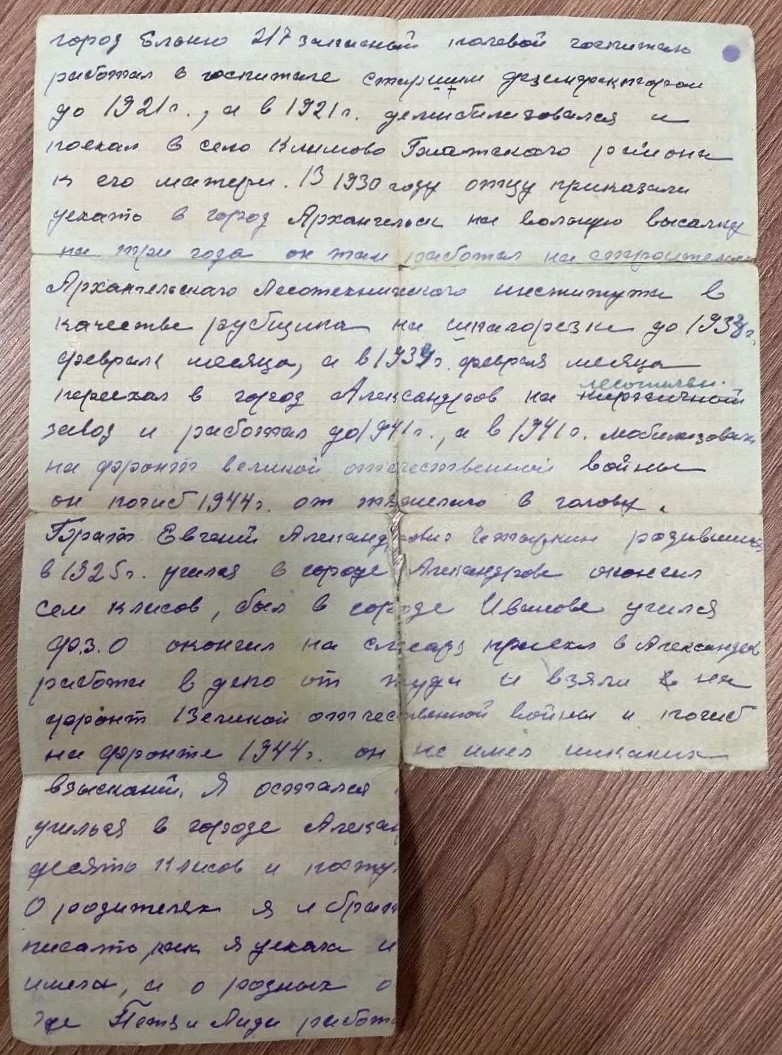 город Елько 217 запасный полевой госпиталь
работал в госпитале старшим дезинфектором
до 1921 г., а в 1921 г. демобилизовался и
поехал в село Климово района
к его матери. В 1930 году отцу приказали
уехать в город Архангельск на вольную высылку
на три года он там работал на строительстве
Архангельского Лесотехнического института в
качестве рубщика на шпагорезки до 1934 г.
февраля месяца, а в 1934 г. февраля месяца
переехал в город Александров на лесопильн.
завод и работал до 1941 г., а в 1941 г. мобилизован
на фронт великой отечественной войны
он погиб 1944 г. от тяжелого в голову.
Брат Евгений Александрович родившийся
в 1925 г. учился в городе Александрове окончил
сем класов, был в городе Иванове учился
ф.з.о окончил на приехал в Александров
работа в депо от туда и взяли на
фронт Великой отечественной войны и погиб
на фронте 1944 г. он не имел никаких
взысканий. Я остался
училься в городе Алексан
десять класов и посту
О родителях я и брат
писать, как я уехала и
имела, а о родных о
где Петя и Лида работ